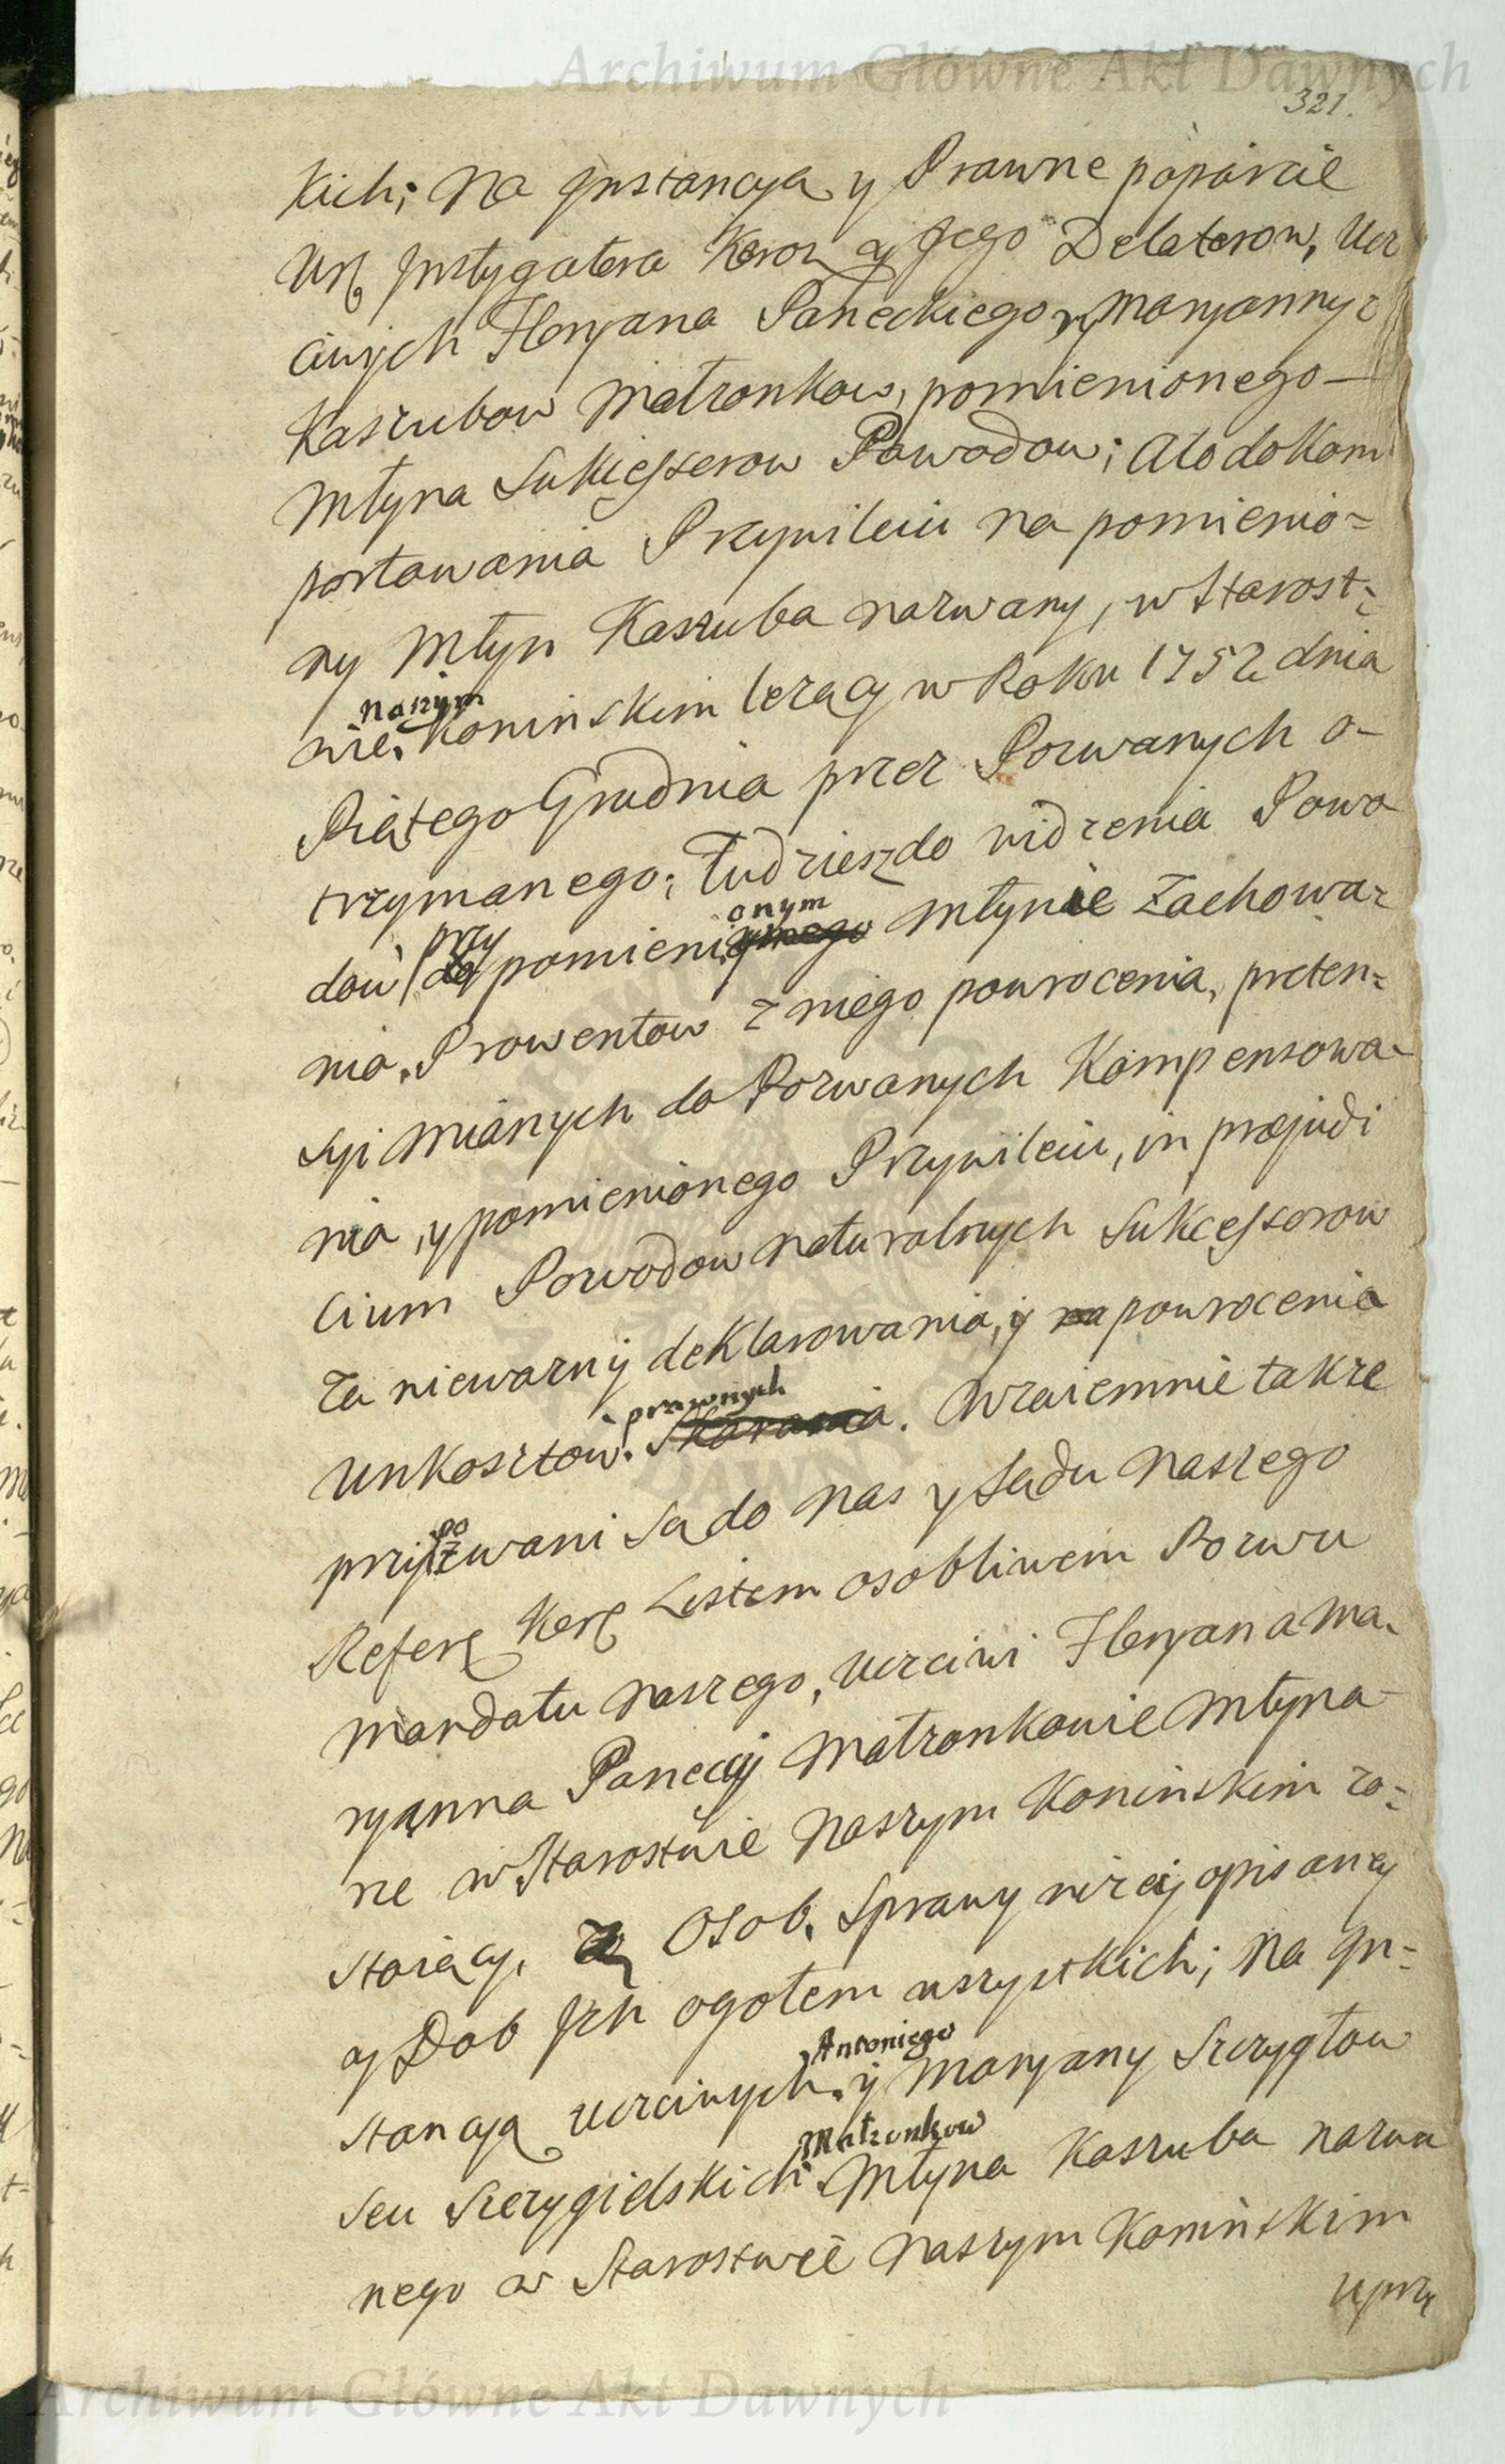 Archiwum Główne Akt Dawnych
321.
kich; Na Jnstancyą y Prawne popárcie
Ur. Jnstygatora Koron y Jego Delatorow, Ucz
ciwych Floryana Paneckiego y Maryanny
Kaszubow Małżonkow, pomienionego —
Młyna Sukcessorow Powodow; A to do Kom
portowania Przywileiu na pomienio=
ny Młyn Kaszuba nazwany, w Starost=
naszym
wie Koninskim leżący w Roku 1752 dnia
Piątego Grudnia przez Pozwanych o-
trzymanego; Tudziesz do widzenia Powo
onym
przy
dow do pomienionego Młynie Zachowa=
nia. Prowentow z niego powrocenia, preten=
syi mianych do Pozwanych Kompensowa-
nia, y pomienionego Przywileiu, in præjudi
cium Powodow naturalnych Sukcessorow
za nieważny deklarowania, y na powrocenia
prawnych
Unkosztow. Skarania. Wzaiemnie także
po
przyzwani są do Nas y Sądu Naszego
Refer Kor Listem osobliwem Pozwu
Mandatu Naszego, Uczciwi Floryan a Ma.
ryanna Paneccy Małżonkowie Młyna-
rze w Starostwie Naszym Koninskim zo=
staiący, z Osob, Sprawy niżey opisaney
y Dob Jch ogołem wszystkich; Na Jn=
Antoniego
stancyą Uczciwych y Maryany Szczygłow
Małżonkow
seu Szczygielskich Młyna Kaszuba nazwa
nego w Starostwie Naszym Koninskim
uprz
Archiwum Główne Akt Dawnych